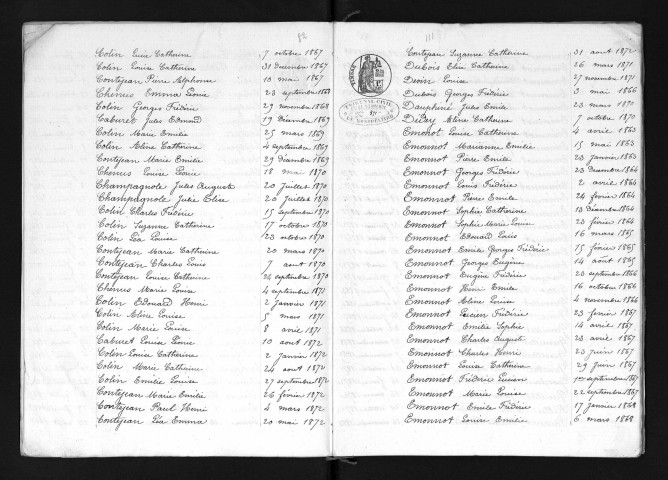 Colin Lucie Catherine 7 octobre 1867
Colin Louise Catherine 31 Decembre 1867
Contejean Pierre Alphonse 10 mai 1867
Chenus Emma Léonie 23 septembre 1868
Colin Georges Frédéric 29 novembre 1868
Caburet Jules Edmond 19 Décembre 1869
Colin Marie Emilie 25 mars 1869
Colin Aline Catherine 4 septembre 1869
Contejean Marie Emilie 29 Décembre 1869
Chenus Louise Léonie 18 mai 1870
Champagnole Jules Auguste 20 Juillet 1870
Champagnole Julie Elise 20 Juillet 1870
Colin Charles Frédéric 15 septembre 1870
Colin Suzanne Catherine 17 octobre 1870
Colin Léa Louise 23 octobre 1870
Contejean Marie Catherine 20 mars 1870
Contejean Charles Louis 7 aout 1870
Contejean Louise Catherine 24 septembre 1870
Chenus Marie Louise 4 septembre 1871
Colin Edouard Henri 2 Janvier 1871
Colin Aline Louise 5 mars 1871
Colin Marie Louise 8 avril 1871
Caburet Louise Léonie 10 aout 1872
Colin Louise Catherine 2 Janvier 1872
Colin Marie Catherine 24 aout 1872
Colin Emilie Louise 27 septembre 1872
Contejean Marie Emilie 26 février 1872
Contejean Paul Henri 4 mars 1872
Contejean Léa Emma 20 mai 1872
111
Contejean Suzanne Catherine 31 aout 1872
DuBois Elise Catherine 26 mars 1871
Devin Louise 27 novembre 1871
Dubois Georges Frédéric 3 mai 1866
Dauphiné Jules Emile 23 mars 1870
Aline Catherine 7 octobre 1870
Emonot Louise Catherine 4 avril 1863
Emonnot Marianne Emilie 15 mai 1863
Emonnot Pierre Emile 23 Janvier 1863
Emonnot Georges Frédéric 23 Décembre 1864
Emonnot Louis Frédéric 2 avril 1864
Emonnot Pierre Emile 24 février 1864
Emonnot Sophie Catherine 13 Décembre 1864
Emonnot Sophie Marie Louise 23 février 1864
Emonnot Edouard Louis 16 mars 1865
Emonnot Emile Georges Frédéric 15 février 1865
Emonnot Georges Eugène 14 aout 1865
Emonnot Eugène Frédéric 23 septembre 1866
Emonnot Henri Emile 16 octobre 1866
Emonnot Aline Louise 4 novembre 1866
Emonnot Lucien Frédéric 23 février 1867
Emonnot Emilie Sophie 14 avril 1867
Emonnot Charles Auguste 23 avril 1867
Emonnot Charles Henri 23 Juin 1867
Emonnot Louise Catherine 29 Juin 1867
Emonnot Frédéric Lucien 1er septembre 1867
Emonnot Marie Louise 22 septembre 1867
Emonnot Emile Frédéric 17 Janvier 1868
Emonnot Louise Emilie 6 mars 1868